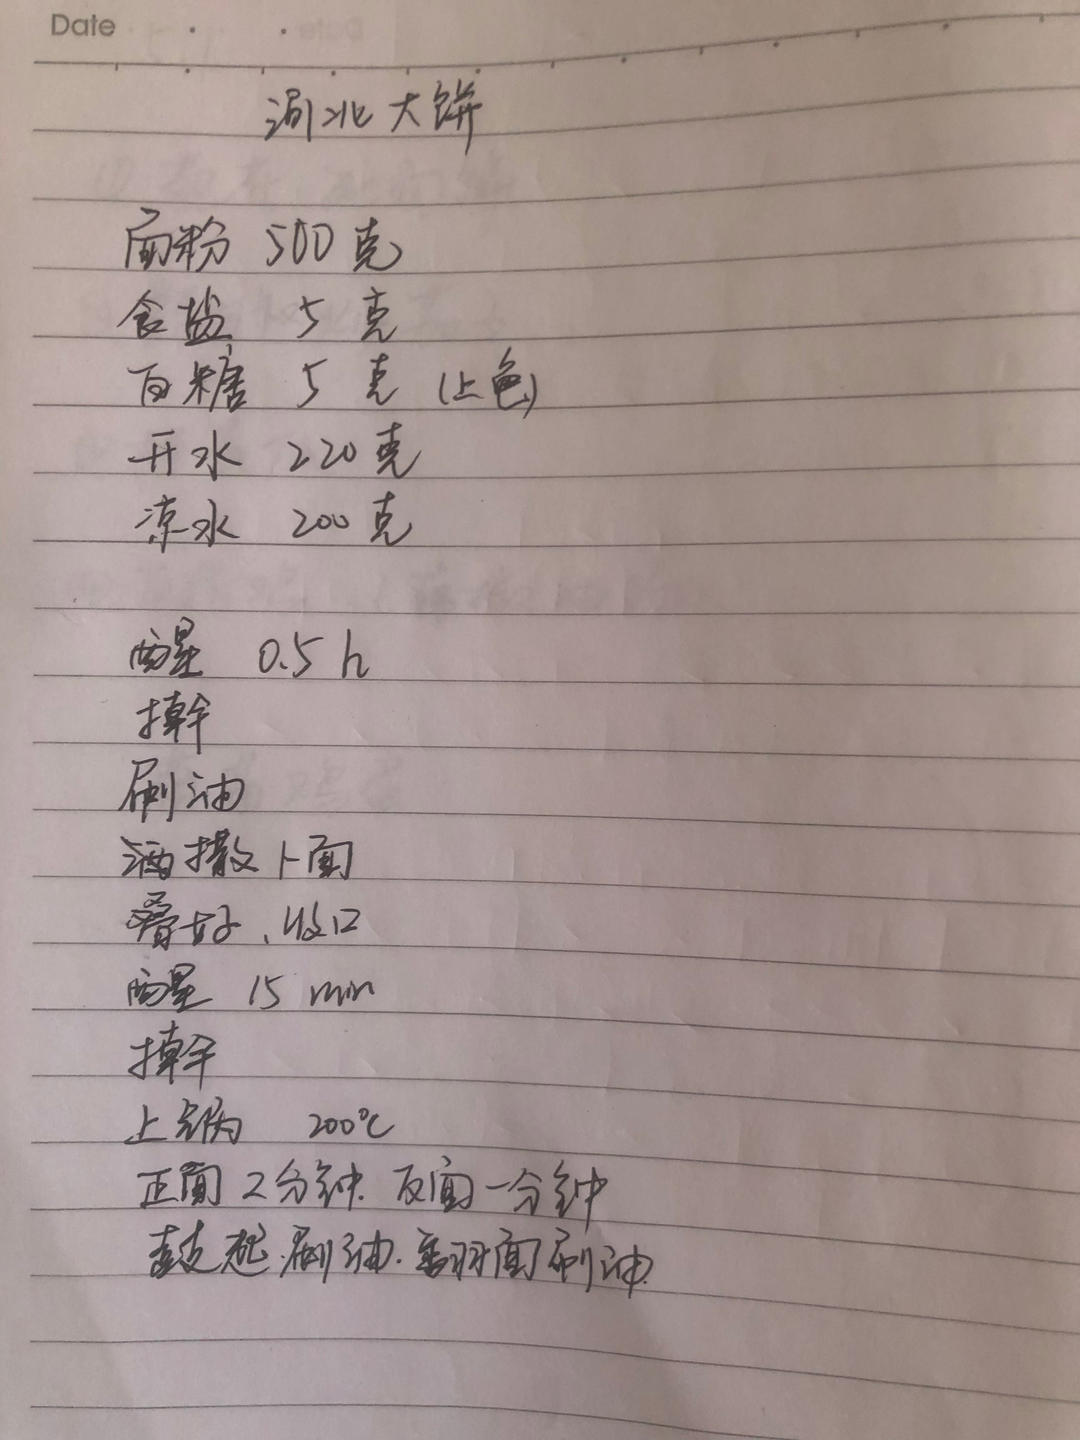 Date
河北大饼
面粉 500克
食盐 5克
白糖 5克 (上色)
开水 220克
凉水 200克
醒 0.5h
擀
刷油
洒撒卜面
叠好、收口
醒 15 min
擀
上锅 200℃
正面2分钟.反面一分钟
鼓起.刷油.翻面刷油.